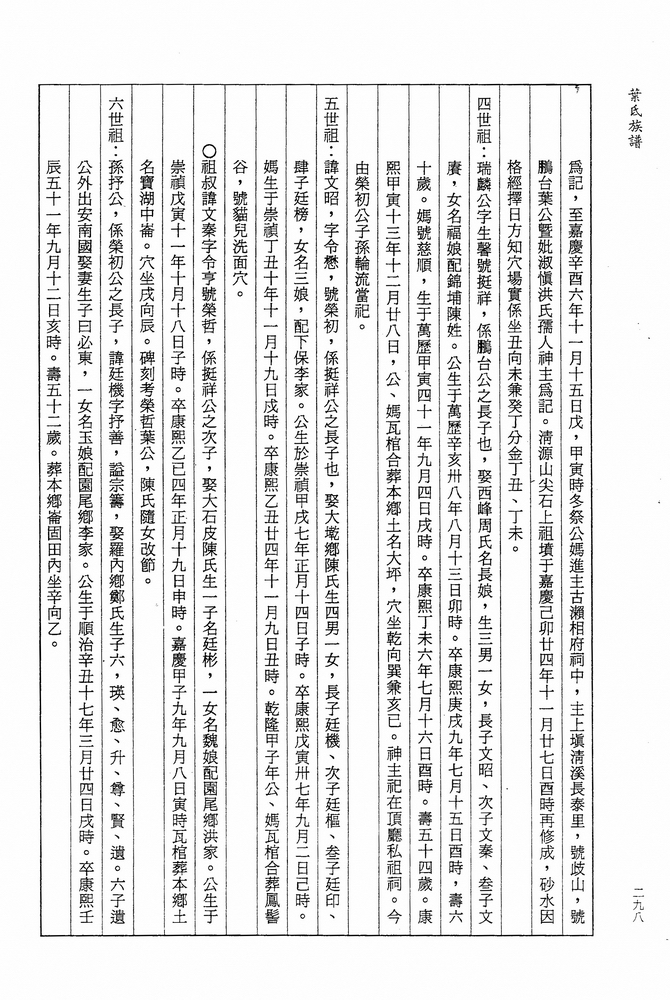 葉氏族譜
二九八
爲記，至嘉慶辛酉六年十一月十五日戊，甲寅時冬祭公媽進主古瀨相府祠中，主上塡淸溪長泰里，號歧山，號
鵬台葉公暨妣淑愼洪氏孺人神主爲記。淸源山尖石上祖墳于嘉慶己卯廿四年十一月廿七日酉時再修成，砂水因
格經擇日方知穴場實係坐丑向未兼癸丁分金丁丑、丁未。
四世祖：瑞麟公字生馨號挺祥，係鵬台公之長子也，娶西峰周氏名長娘，生三男一女，長子文昭、次子文秦、叁子文
賡，女名福娘配錦埔陳姓。公生于萬歷辛亥卅八年八月十三日卯時。卒康熙庚戌九年七月十五日酉時，壽六
十歲。媽號慈順，生于萬歷甲寅四十一年九月四日戌時。卒康熙丁未六年七月十六日酉時。壽五十四歲。康
熙甲寅十三年十二月廿八日，公、媽瓦棺合葬本鄉土名大坪，穴坐乾向巽兼亥已。神主祀在頂廳私祖祠。今
由榮初公子孫輪流當祀。
五世祖：諱文昭，字令懋，號榮初，係挺祥公之長子也，娶大墘鄉陳氏生四男一女，長子廷機、次子廷樞、叁子廷印、
肆子廷榜，女名三娘，配下保李家。公生於崇禎甲戌七年正月十四日子時。卒康熙戊寅卅七年九月二日己時。
媽生于崇禎丁丑十年十一月十九日戌時。卒康熙乙丑廿四年十一月九日丑時。乾隆甲子年公、媽瓦棺合葬鳳髻
谷，號貓兒洗面穴。
○祖叔諱文秦字令亨號榮哲，係挺祥公之次子，娶大石皮陳氏生一子名廷彬，一女名魏娘配園尾鄉洪家。公生于
崇禎戊寅十一年十月十八日子時。卒康熙乙已四年正月十九日申時。嘉慶甲子九年九月八日寅時瓦棺葬本鄉土
名寶湖中崙。穴坐戌向辰。碑刻考榮哲葉公，陳氏隨女改節。
六世祖：孫抒公，係榮初公之長子，諱廷機字抒善，謚宗籌，娶羅內鄉鄭氏生子六，瑛、愈、升、尊、賢、遺。六子遺
公外出安南國娶妻生子曰必東，一女名玉娘配園尾鄉李家。公生于順治辛丑十七年三月廿四日戌時。卒康熙壬
辰五十一年九月十二日亥時。壽五十二歲。葬本鄉崙固田內坐辛向乙。